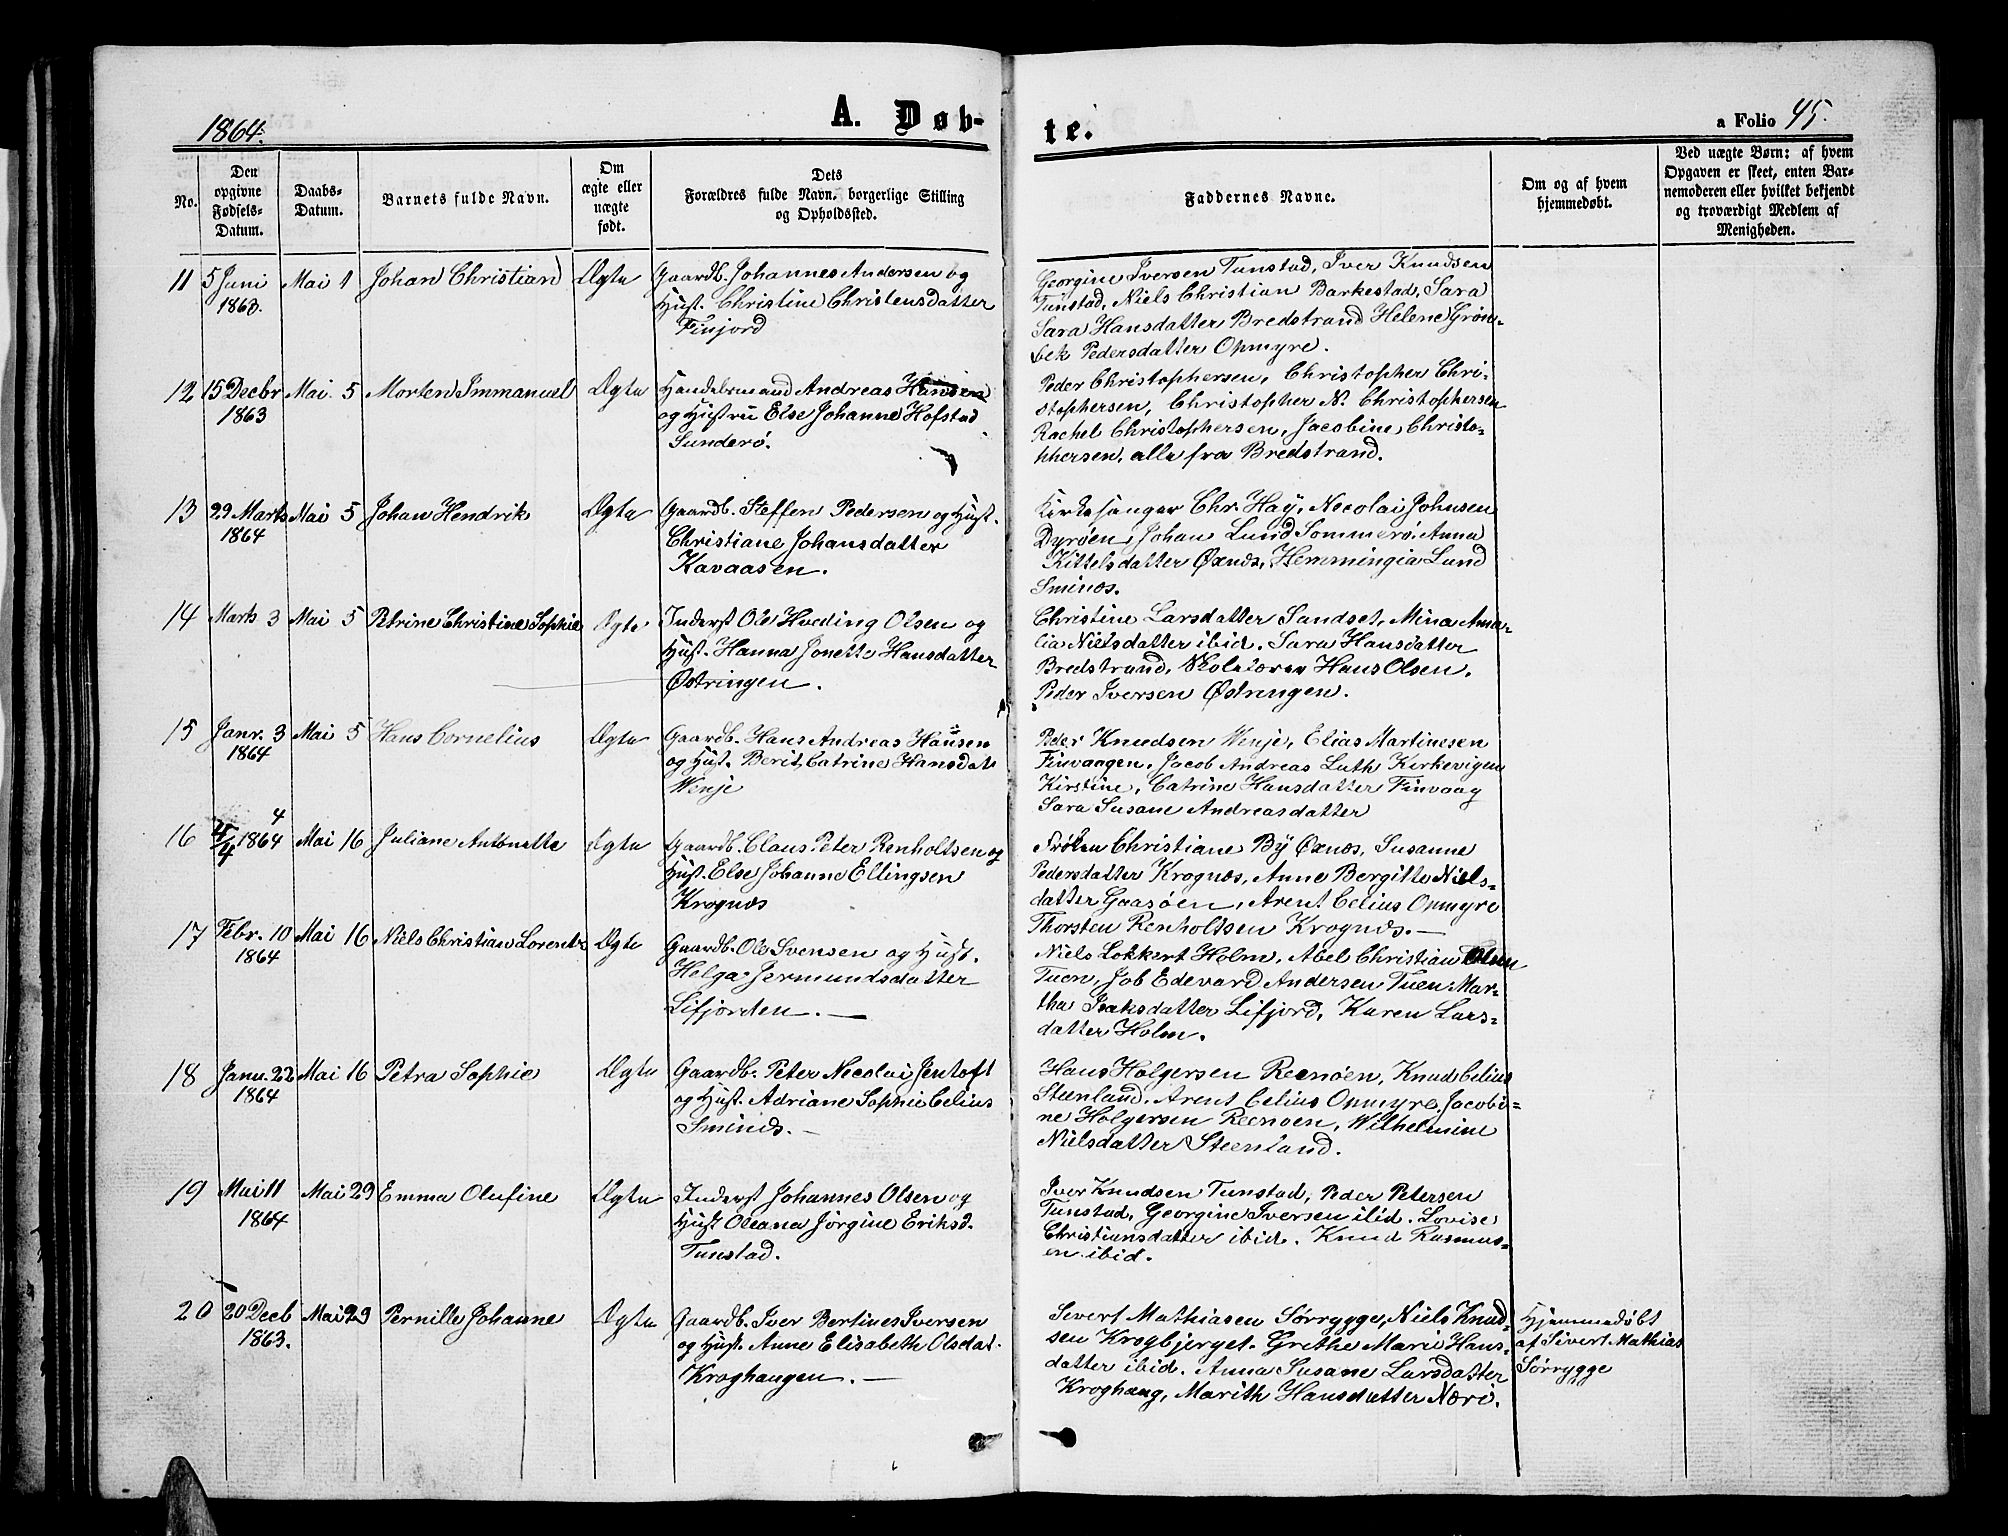 1864.
A. Døb-
te.
a Folio 45.
No.
Den opgivne Fødsels-Datum.
Daabs-Datum.
Barnets fulde Navn.
Om ægte eller uægte født.
Dets Forældres fulde Navn, borgerlige Stilling og Opholdssted.
Faddernes Navne.
Om og af hvem hjemmedøbt.
Ved uægte Børn: af hvem Opgaven er skeet, enten Barnemoderen eller hvilket bekjendt og troværdigt Medlem af Menigheden.
11 5 Juni 1863. Mai 1 Johan Christian Ægte
Gaardb. Johannes Andersen og
Hust. Christine Christensdatter
Finjord
Georgine Iversen Tunstad, Iver Knudsen
Tunstad, Niels Christian Barkestad, Sara
Sara Hansdatter Bredstrand Helene Grøn-
bek Pedersdatter Opmyre.
12 15 Decbr 1863 Mai 5 Morten Immanuel Ægte
Handelsmand Andreas Hansen
og Hustru Else Johanne Hofstad
Sunderø.
Peder Christophersen, Christopher Chri-
stophersen, Christopher N. Christophersen
Rachel Christophersen, Jacobine Christo-
phersen, alle fra Bredstrand.
13 29 Marts 1864 Mai 5 Johan Hendrik Ægte
Gaardb. Steffen Pedersen og Hust.
Christiane Johansdatter
Kavaasen.
Kirkesanger Chr. Hay, Necolai Johnsen
Dyrøen, Johan Lund Sommerø, Anna
Kittelsdatter Øxnæs, Hemmingia Lund
Sminæs.
14 Marts 3 Mai 5 Petrine Christine Sophie Ægte
Inderst Ole Hveding Olsen og
Hust. Hanna Jonette Hansdatter
Østringen.
Christine Larsdatter Sandset, Mina Ama-
lia Nielsdatter ibid. Sara Hansdatter
Bredstrand, Skolelærer Hans Olsen,
Peder Iversen Østringen.
15 Janr. 3 1864 Mai 5 Hans Cornelius Ægte
Gaardb. Hans Andreas Hansen
og Hust. Berit Catrine Hansdat.
Wenje
Peder Knudsen Wenje, Elias Martinesen
Finvaagen, Jacob Andreas Luth Kirkevigen
Kirstine, Catrine Hansdatter Finvaag
Sara Susane Andreasdatter
16 4/4 1864 Mai 16 Juliane Antonette Ægte
Gaardb. Claus Peter Renholtsen og
Hust. Else Johanne Ellingsen
Krognæs
Frøken Christiane By Øxnæs, Susanne
Pedersdatter Krognæs, Anne Bergitte Niels-
datter Gaasøen, Arent Celius Opmyre
Thorsten Renholtsen Krognæs.—
17 Febr. 10 1864 Mai 16 Niels Christian Lorentz Ægte
Gaardb. Ole Svensen og Hust.
Helga Jermundsdatter
Lifjorden.—
Niels Lokkert Holm, Abel Christian Olsen
Tuen, Job Edevard Andersen Tuen, Mar-
tha Isaksdatter Lifjord, Karen Lars-
datter Holm.
18 Janu. 22 1864 Mai 16 Petra Sophie Ægte
Gaardb. Peter Necolai Jentoft
og Hust. Adriane Sophie Celius
Sminæs.—
Hans Holgersen Reenøen, Knud Celius
Steenland, Arent Celius Opmyre, Jacobi-
ne Holgersen Reenøen, Wilhelmine
Nielsdatter Steenland.
19 Mai 11 1864 Mai 29 Emma Olufine Ægte
Inderst Johannes Olsen og
Hust Oleana Jørgine Eriksd.
Tunstad.
Iver Knudsen Tunstad, Peder Petersen
Tunstad, Georgine Iversen ibid. Lovise
Christiansdatter ibid. Knud Rasmus-
en ibid.
20 20 Decb 1863. Mai 29 Pernille Johanne Ægte
Gaardb. Iver Bertines Iversen
og Hust. Anne Elisabeth Olsdat.
Kroghaugen.—
Severt Mathiasen Sørrygge, Niels Knud-
sen Krogbjerget. Grethe Marie Hans-
datter ibid. Anna Susane Larsdatter
Kroghaug, Marith Hansdatter Nærø.
Hjemmedøbt
af Sivert Mathias
Sørrygge